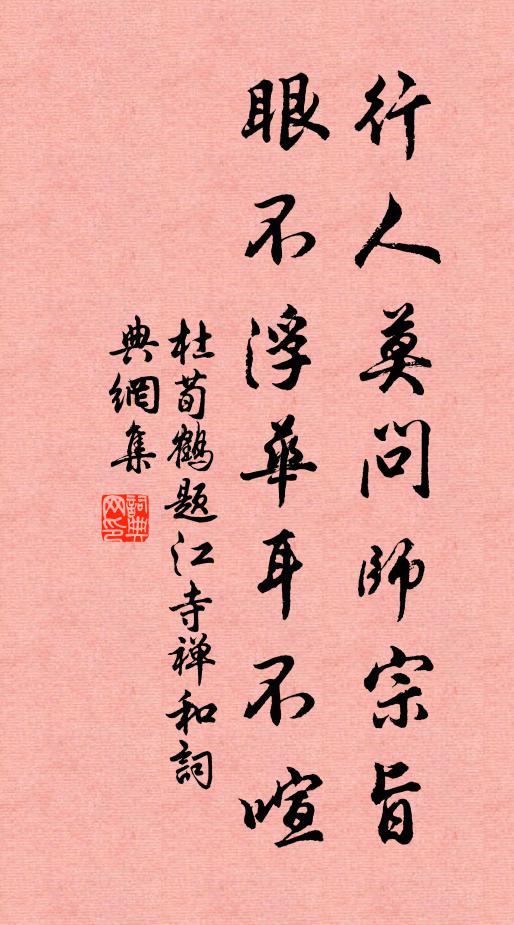 行人莫問師宗旨
眼不浮華耳不喧
杜荀鶴題江寺禅和詞
典網集
詞典网印